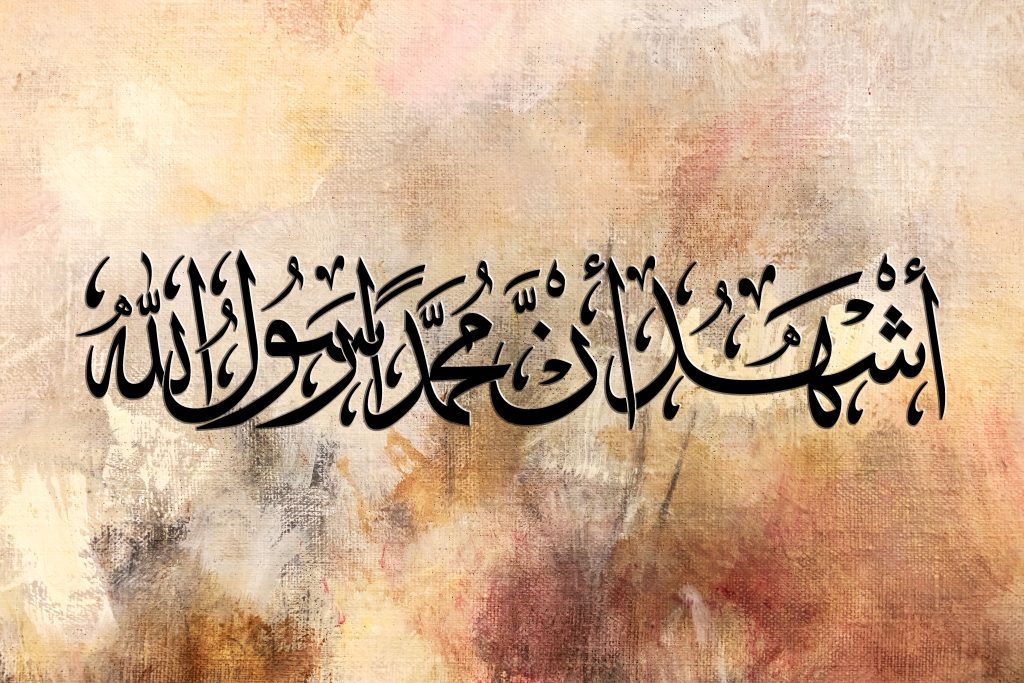 أَشْهَدُ أَنَّ مُحَمَّدًا رَسُولُ اللهِ